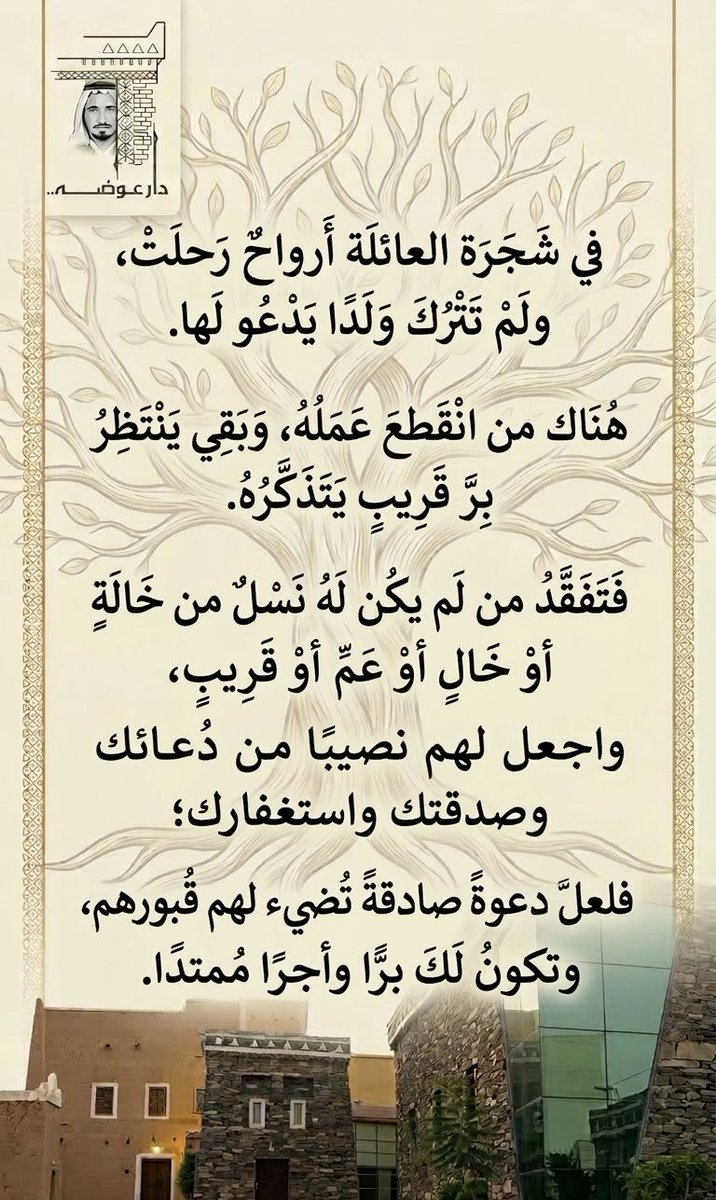 دار عوضه..
في شَجَرَة العائلَة أَرواحٌ رَحلَتْ،
ولَمْ تَتْرُكَ وَلَدًا يَدْعُو لَها.
هُنَاك من انْقَطعَ عَمَلُهُ، وَبَقِي يَنْتَظِرُ
بِرَّ قَرِيبٍ يَتَذَكَّرُهُ.
فَتَفَقَّدُ من لَم يكُن لَهُ نَسْلٌ من خَالَةٍ
أوْ خَالٍ أوْ عَمِّ أوْ قَرِيبٍ،
واجعل لهم نصيبًا من دُعـائك
وصدقتك واستغفارك؛
فلعلَّ دعوةً صادقةً تُضيء لهم قُبورهم،
وتكونُ لَكَ برًّا وأجرًا مُمتدًا.